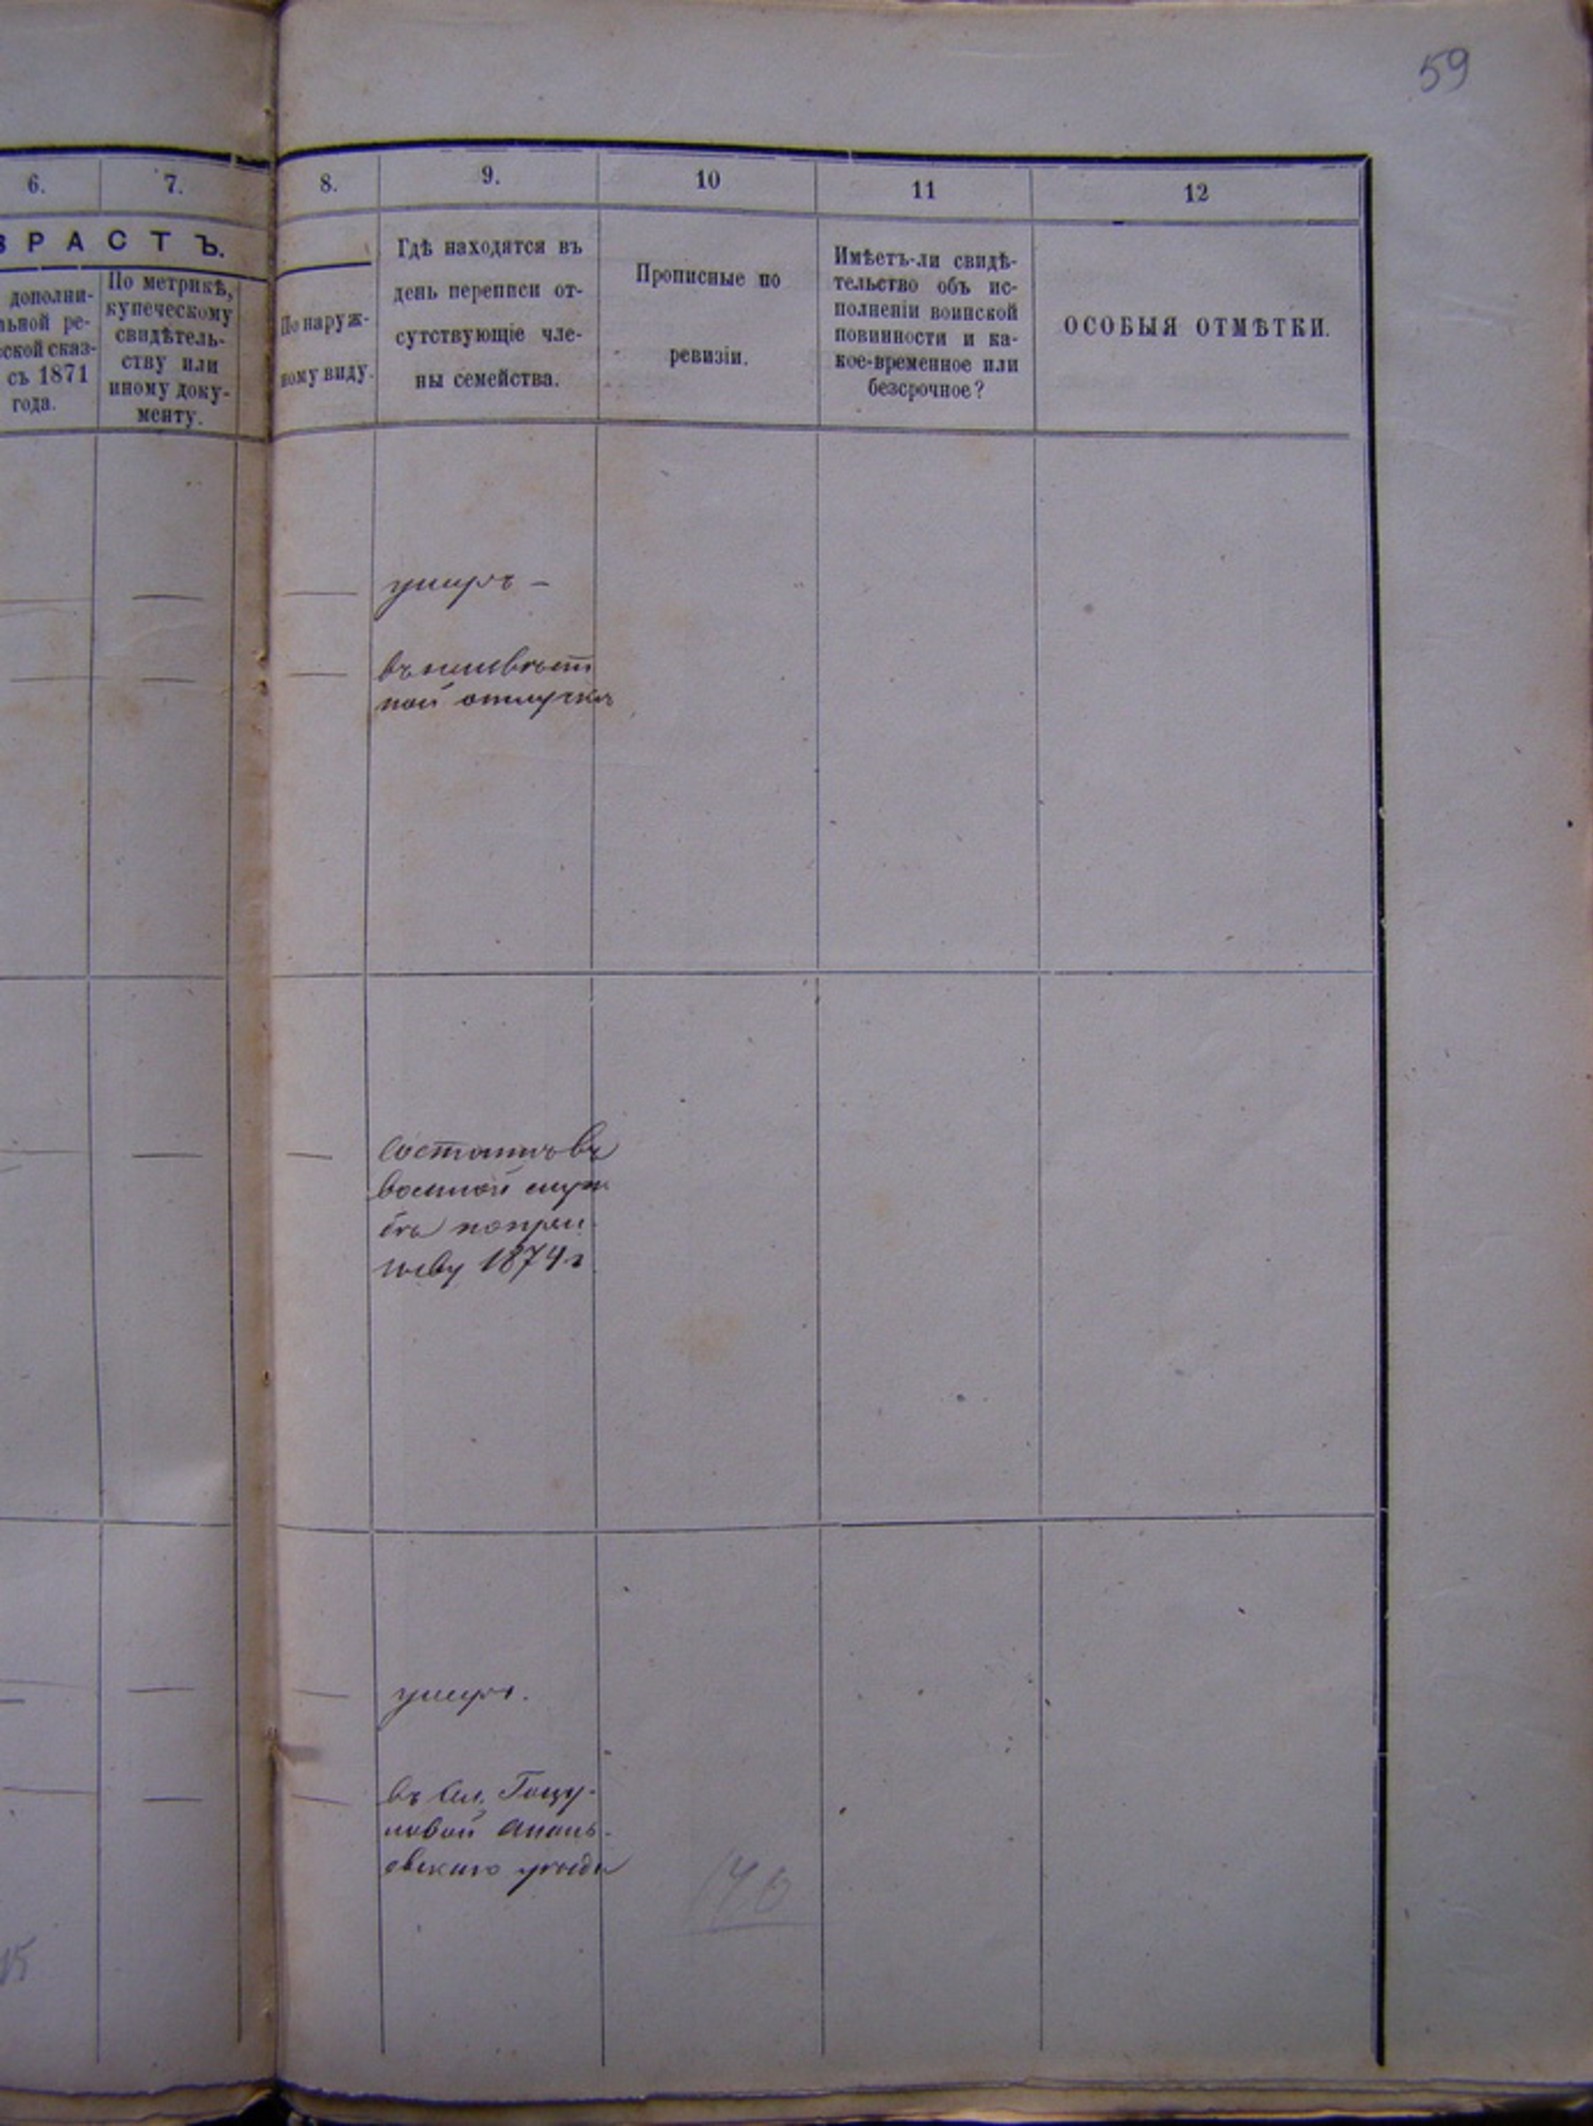 59
6.
7.
8.
9.
10
11
12
ЗРАСТЪ.
дополни-
льной ре-
ской сказ-
съ 1871
года.
По метрикѣ,
купеческому
свидѣтель-
ству или
иному доку-
менту.
По наруж-
ному виду.
Гдѣ находятся въ
день переписи от-
сутствующіе чле-
ны семейства.
Прописные по
ревизіи.
Имѣетъ-ли свидѣ-
тельство объ ис-
полненіи воинской
повинности и ка-
кое-временное или
безсрочное?
ОСОБЫЯ ОТМѢТКИ.
умеръ –
въ неизвѣст
ной отлучкѣ
Состоитъ въ
военной служ
бѣ по при
зыву 1874 г
умеръ.
въ Сел. Гоцу-
ловой Анань-
евскаго уѣзда
140
15